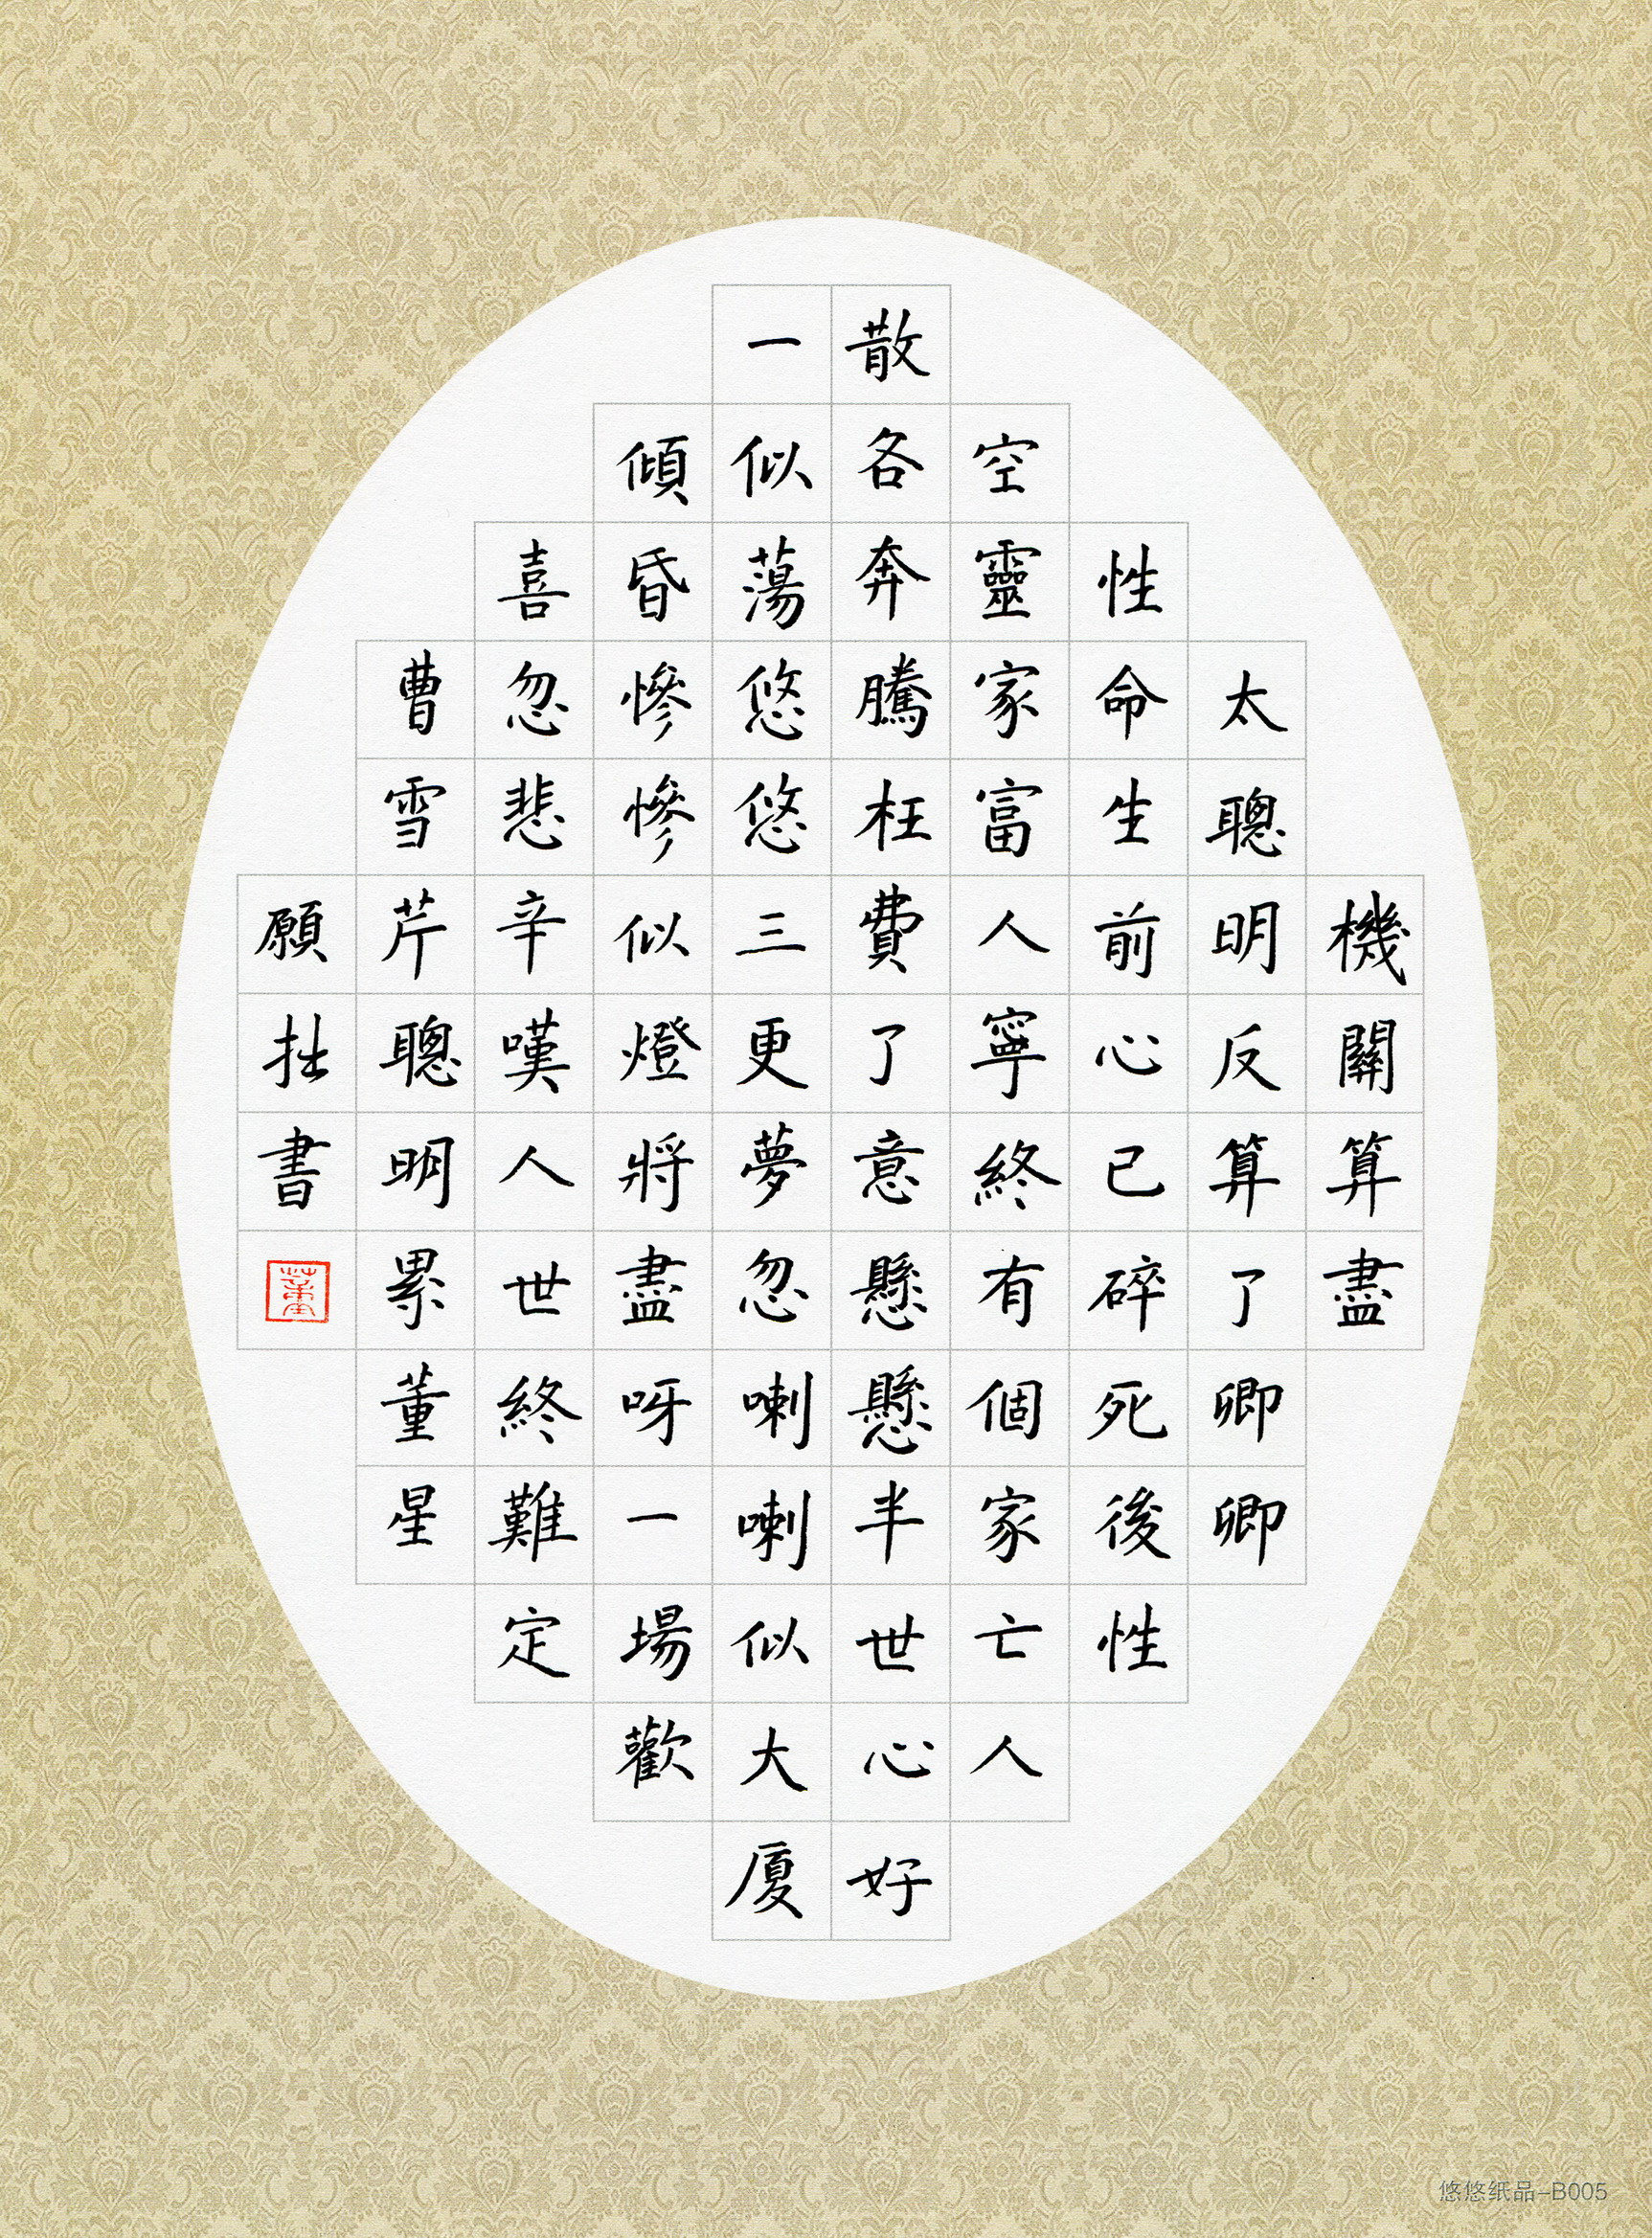 機關算盡
太聰明反算了卿卿
性命生前心已碎死後性
空靈家富人寧終有個家亡人
散各奔騰枉費了意懸懸半世心好
一似蕩悠悠三更夢忽喇喇似大廈
傾昏慘慘似燈將盡呀一場歡
喜忽悲辛嘆人世終難定
曹雪芹聰明累董星
願拙書
悠悠纸品-B005